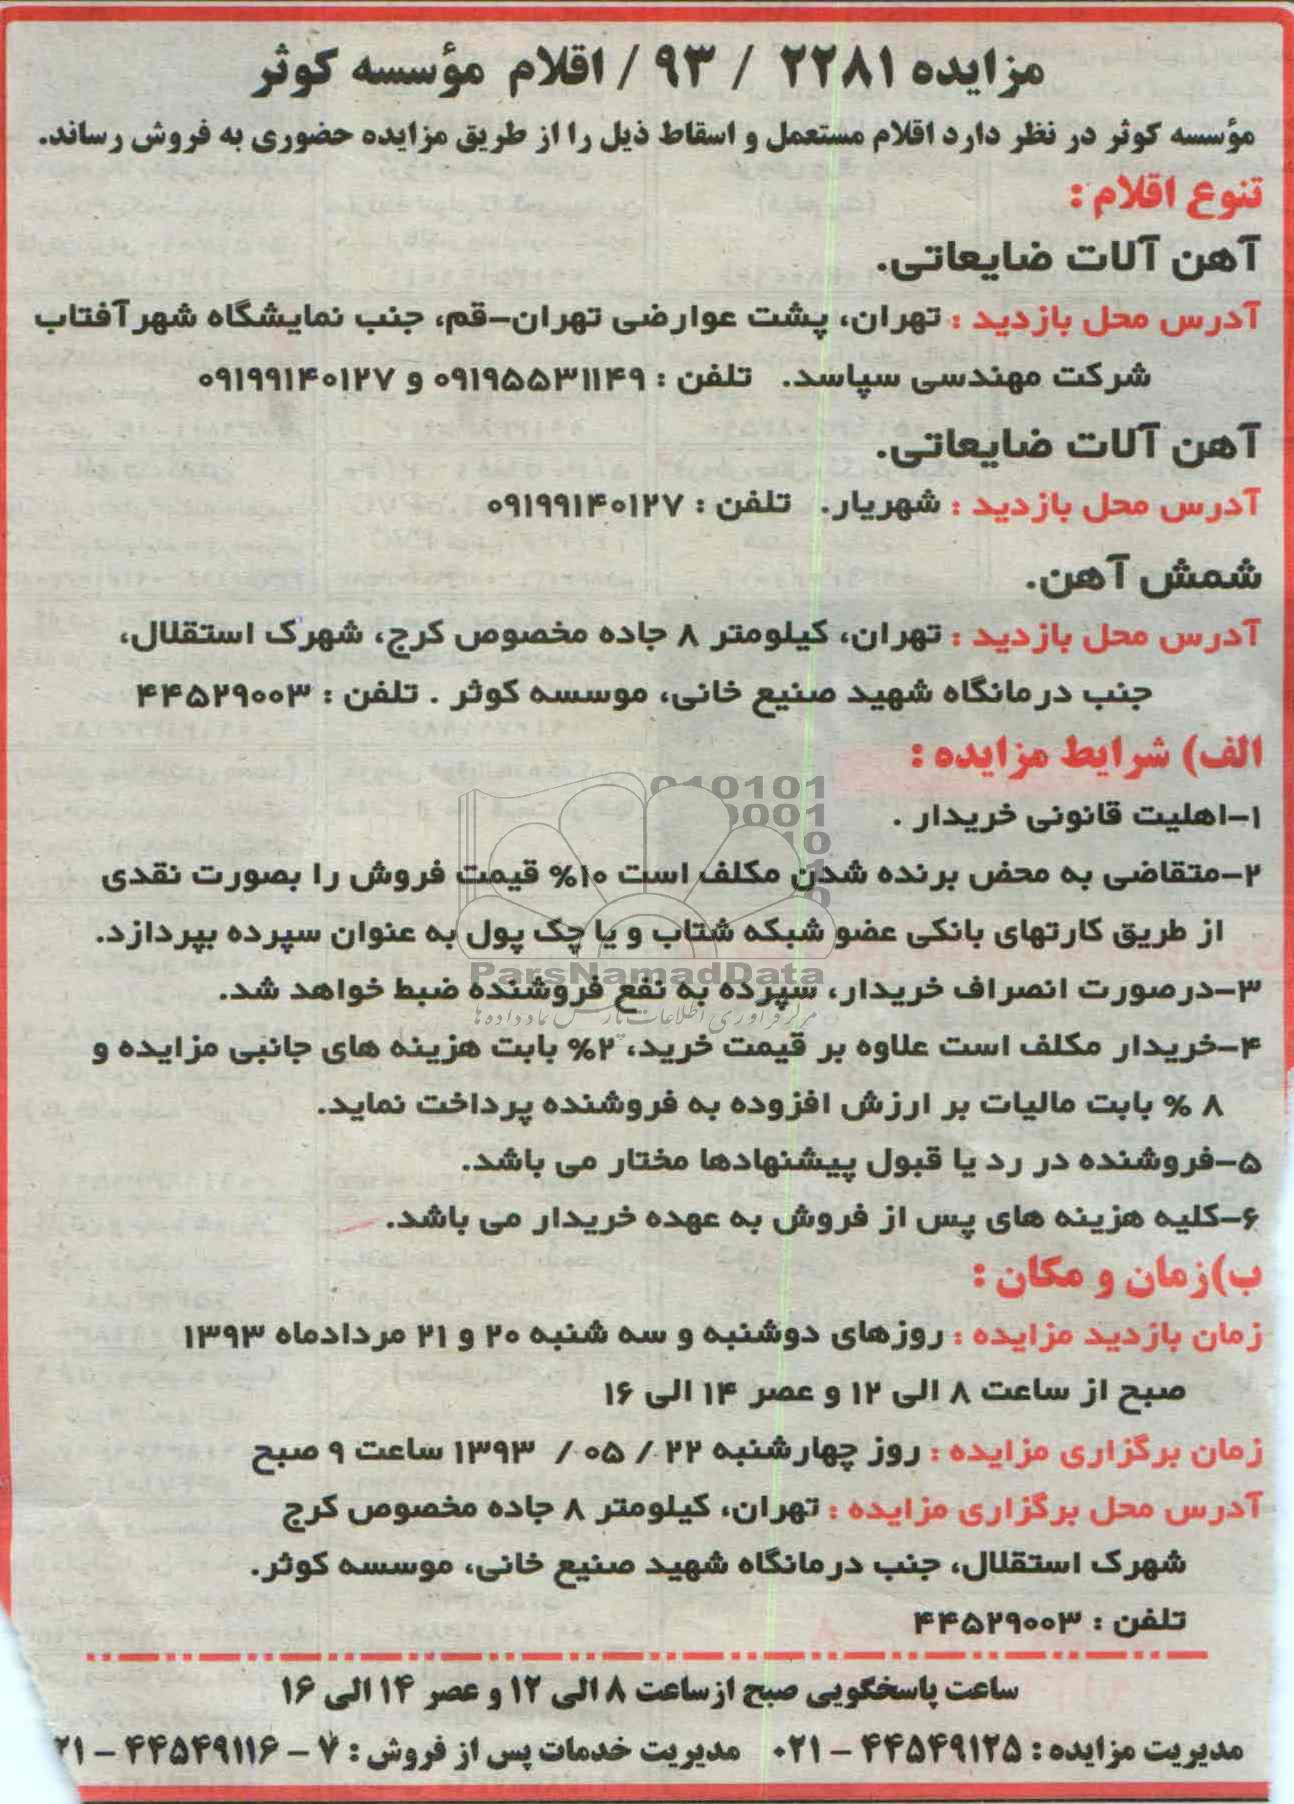 مزایده ۲۲۸۱ / ۹۳ / اقلام مؤسسه کوثر
مؤسسه کوثر در نظر دارد اقلام مستعمل و اسقاط ذیل را از طریق مزایده حضوری به فروش رساند.
تنوع اقلام :
آهن آلات ضایعاتی.
آدرس محل بازدید : تهران، پشت عوارضی تهران-قم، جنب نمایشگاه شهرآفتاب
شرکت مهندسی سپاسد. تلفن : ۰۹۱۹۵۵۳۱۱۴۹ و ۰۹۱۹۹۱۴۰۱۲۷
آهن آلات ضایعاتی.
آدرس محل بازدید : شهریار. تلفن : ۰۹۱۹۹۱۴۰۱۲۷
شمش آهن.
آدرس محل بازدید : تهران، کیلومتر ۸ جاده مخصوص کرج، شهرک استقلال،
جنب درمانگاه شهید صنیع خانی، موسسه کوثر . تلفن : ۴۴۵۲۹۰۰۳
الف) شرایط مزایده :
۱-اهلیت قانونی خریدار .
۲-متقاضی به محض برنده شدن مکلف است ۱۰% قیمت فروش را بصورت نقدی
از طریق کارتهای بانکی عضو شبکه شتاب و یا چک پول به عنوان سپرده بپردازد.
ParsNamadData
۳-درصورت انصراف خریدار، سپرده به نفع فروشنده ضبط خواهد شد.
مرکز فرآوری اطلاعات پارس نماد داده ها
۴-خریدار مکلف است علاوه بر قیمت خرید، ۲% بابت هزینه های جانبی مزایده و
۸ % بابت مالیات بر ارزش افزوده به فروشنده پرداخت نماید.
۵-فروشنده در رد یا قبول پیشنهادها مختار می باشد.
۶-کلیه هزینه های پس از فروش به عهده خریدار می باشد.
ب)زمان و مکان :
زمان بازدید مزایده : روزهای دوشنبه و سه شنبه ۲۰ و ۲۱ مردادماه ۱۳۹۳
صبح از ساعت ۸ الی ۱۲ و عصر ۱۴ الی ۱۶
زمان برگزاری مزایده : روز چهارشنبه ۲۲ / ۰۵ / ۱۳۹۳ ساعت ۹ صبح
آدرس محل برگزاری مزایده : تهران، کیلومتر ۸ جاده مخصوص کرج
شهرک استقلال، جنب درمانگاه شهید صنیع خانی، موسسه کوثر.
تلفن : ۴۴۵۲۹۰۰۳
ساعت پاسخگویی صبح ازساعت ۸ الی ۱۲ و عصر ۱۴ الی ۱۶
مدیریت مزایده : ۴۴۵۴۹۱۲۵ - ۰۲۱ مدیریت خدمات پس از فروش : ۷ - ۴۴۵۴۹۱۱۶ - ۲۱